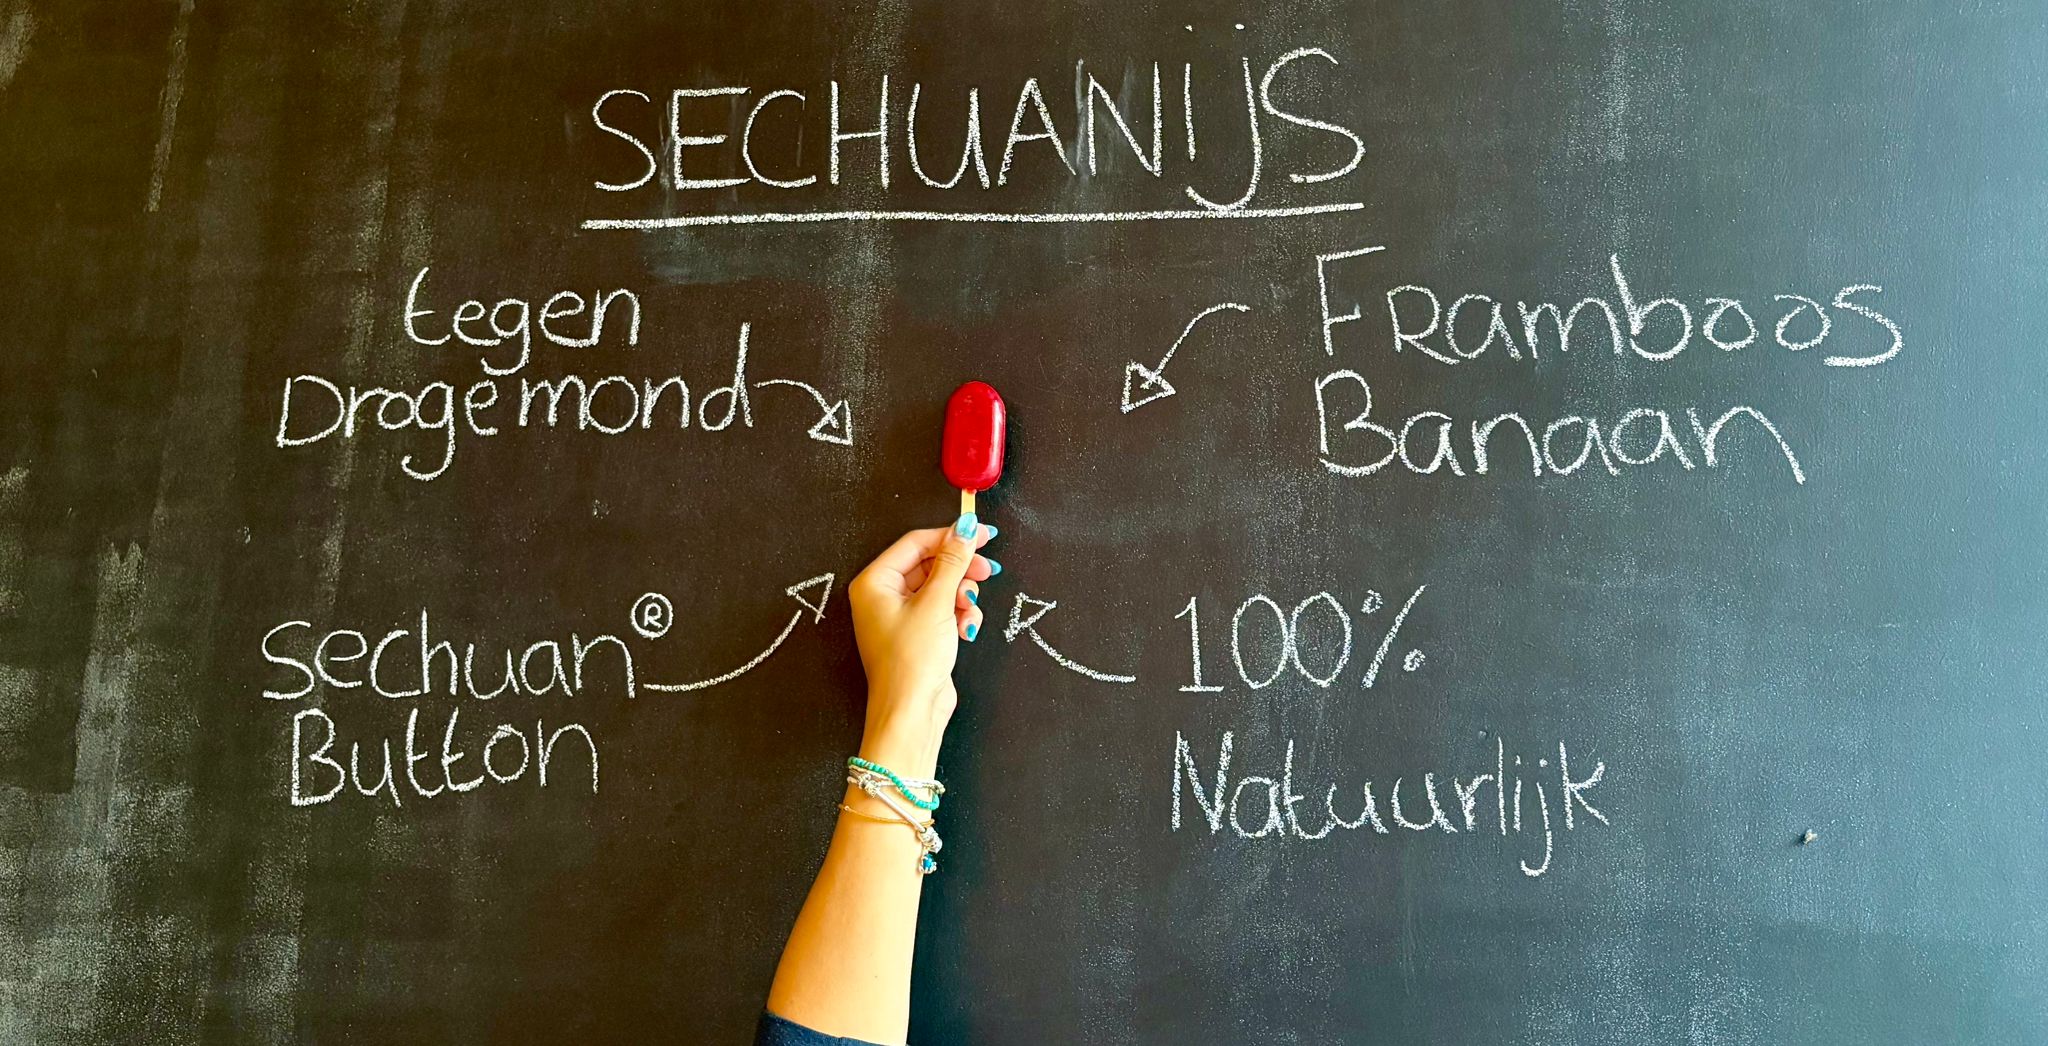 SECHUANIJS
tegen
Drogemond
Framboos
Banaan
Sechuan®
Button
100%
Natuurlijk